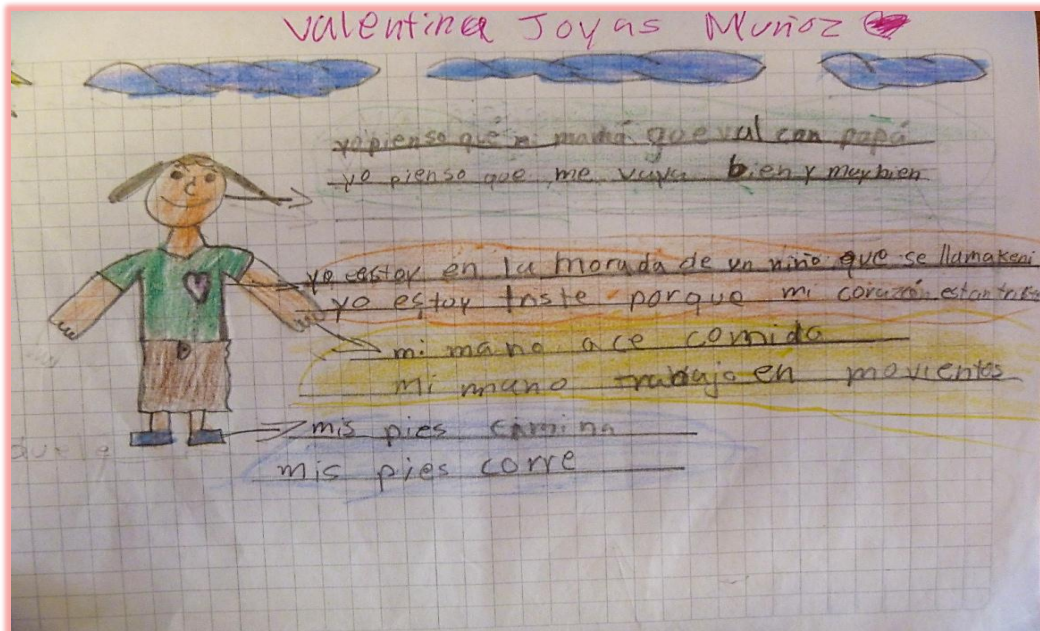 Valentina Joyas Muñoz
yo pienso que mi mamá que val con papá
yo pienso que me vaya bien y muy bien
yo eastoy en la morada de un niño que se llama keni
yo estoy triste porque mi corazón estan triste
mi mano ace comida
mi mano trabajo en movientos
mis pies camina
mis pies corre